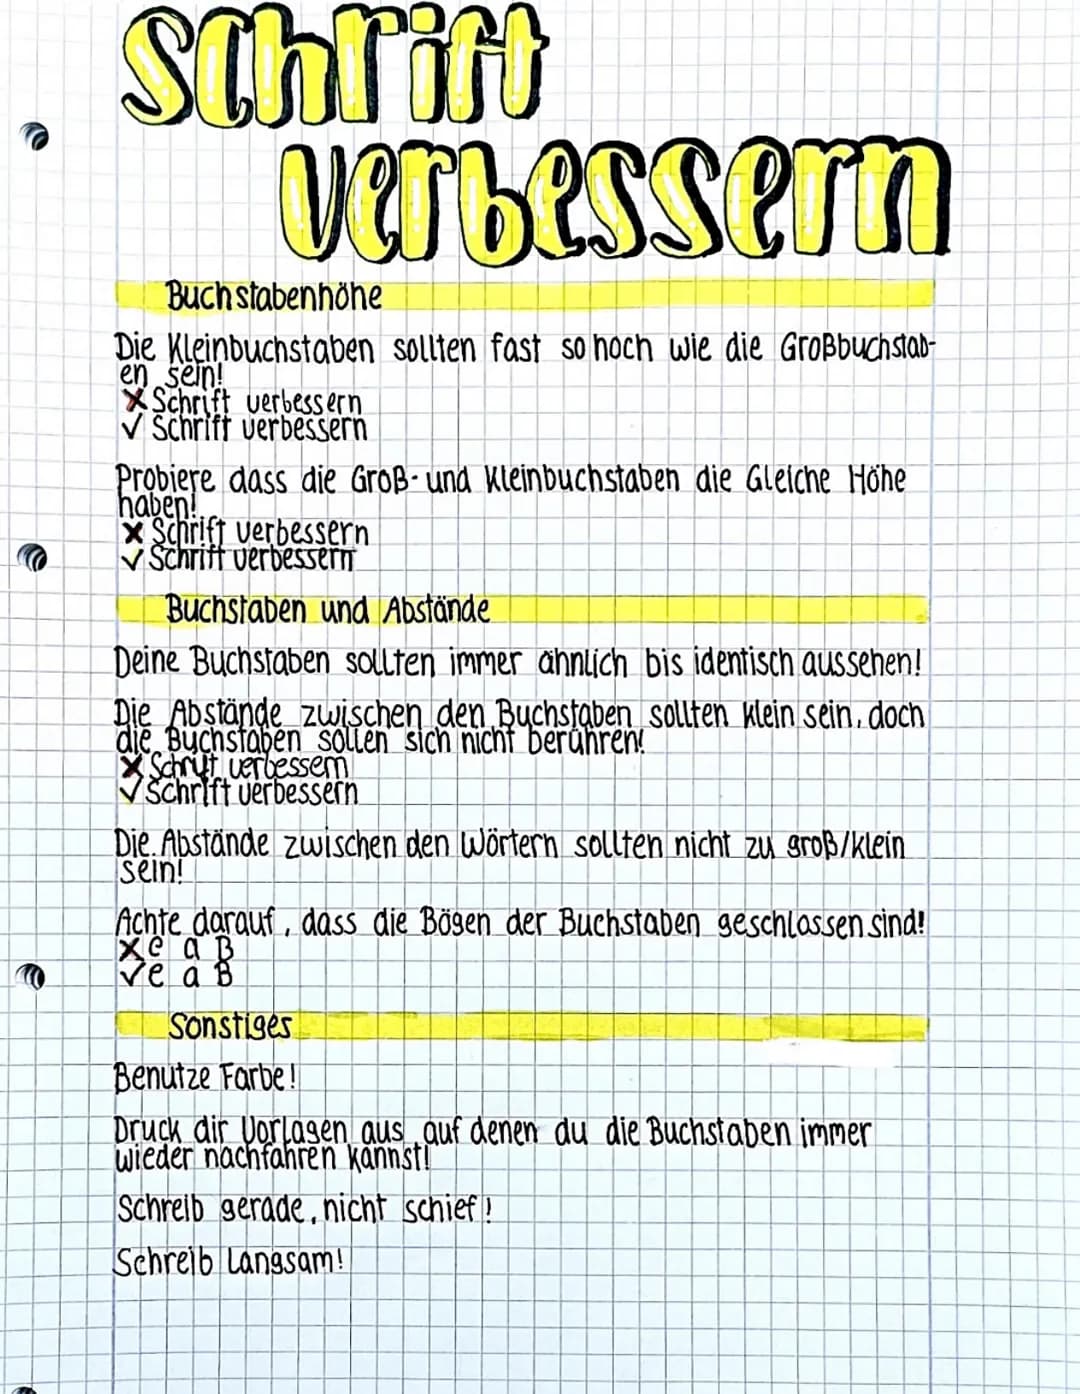 Schrift
verbessern
Buchstabenhöhe
Die Kleinbuchstaben sollten fast so hoch wie die Großbuchstab-
en sein!
✗ Schrift verbessern
✓ Schrift verbessern
Probiere dass die Groß- und Kleinbuchstaben die Gleiche Höhe
haben!
✗ Schrift verbessern
✓ Schrift verbessern
Buchstaben und Abstände
Deine Buchstaben sollten immer ähnlich bis identisch aussehen!
Die Abstände zwischen den Buchstaben sollten klein sein, doch
die Buchstaben sollen sich nicht berühren!
✗ Schrift verbessern
✓ Schrift verbessern
Die Abstände zwischen den Wörtern sollten nicht zu groß/klein
sein!
Achte darauf, dass die Bögen der Buchstaben geschlossen sind!
✗ e a B
✓ e a B
Sonstiges
Benutze Farbe!
Druck dir Vorlagen aus auf denen du die Buchstaben immer
wieder nachfahren kannst!
Schreib gerade, nicht schief!
Schreib Langsam!